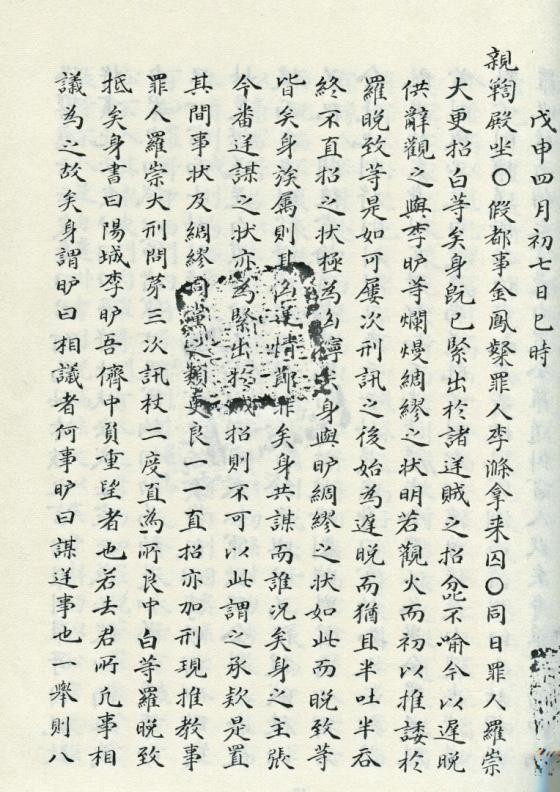 戊申四月初七日巳時
親鞫殿坐○假都事金鳳鞶罪人李滌拿来囚○同日罪人羅崇
大更招白等矣身旣已緊出於諸逆賊之招叱不喻今以遅晚
供辭觀之與李𣅿等爛熳綢繆之狀明若觀火而初以推諉於
羅晚致等是如可屢次刑訊之後始為遅晚而猶且半吐半吞
終不直招之狀極為凶獰矣身與𣅿綢繆之狀如此而晚致等
皆矣身族属則其凶逆情節非矣身共謀而誰况矣身之主張
今番逆謀之狀亦為緊出於招則不可以此謂之承款是置
其間事狀及綢繆同黨之類更良一一直招亦加刑現推教事
罪人羅崇大刑問苐三次訊杖二度直為所良中白等羅晚致
抵矣身書曰陽城李𣅿吾儕中負重望者也若去君所凡事相
議為之故矣身謂𣅿曰相議者何事𣅿曰謀逆事也一舉則八